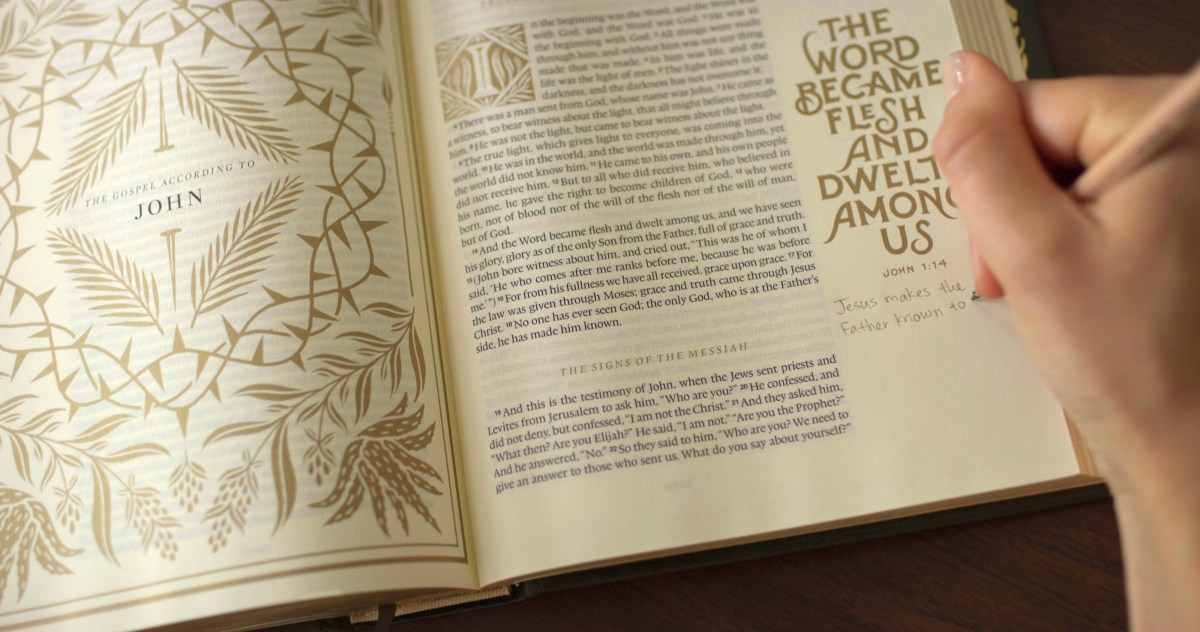 THE GOSPEL ACCORDING TO
JOHN
I
n the beginning was the Word, and the Word was
with God, and the Word was God. ²He was in
the beginning with God. ³All things were made
through him, and without him was not any thing
made that was made. ⁴In him was life, and the
life was the light of men. ⁵The light shines in the
darkness, and the darkness has not overcome it.
⁶There was a man sent from God, whose name was John. ⁷He came as
a witness, to bear witness about the light, that all might believe through
him. ⁸He was not the light, but came to bear witness about the light.
⁹The true light, which gives light to everyone, was coming into the
world. ¹⁰He was in the world, and the world was made through him, yet
the world did not know him. ¹¹He came to his own, and his own people
did not receive him. ¹²But to all who did receive him, who believed in
his name, he gave the right to become children of God, ¹³who were
born, not of blood nor of the will of the flesh nor of the will of man,
but of God.
¹⁴And the Word became flesh and dwelt among us, and we have seen
his glory, glory as of the only Son from the Father, full of grace and truth.
¹⁵(John bore witness about him, and cried out, “This was he of whom I
said, ‘He who comes after me ranks before me, because he was before
me.’”) ¹⁶For from his fullness we have all received, grace upon grace. ¹⁷For
the law was given through Moses; grace and truth came through Jesus
Christ. ¹⁸No one has ever seen God; the only God, who is at the Father’s
side, he has made him known.
THE SIGNS OF THE MESSIAH
¹⁹And this is the testimony of John, when the Jews sent priests and
Levites from Jerusalem to ask him, “Who are you?” ²⁰He confessed, and
did not deny, but confessed, “I am not the Christ.” ²¹And they asked him,
“What then? Are you Elijah?” He said, “I am not.” “Are you the Prophet?”
And he answered, “No.” ²²So they said to him, “Who are you? We need to
give an answer to those who sent us. What do you say about yourself?”
THE
WORD
BECAME
FLESH
AND
DWELT
AMONG
US
JOHN 1:14
Jesus makes the
Father known to